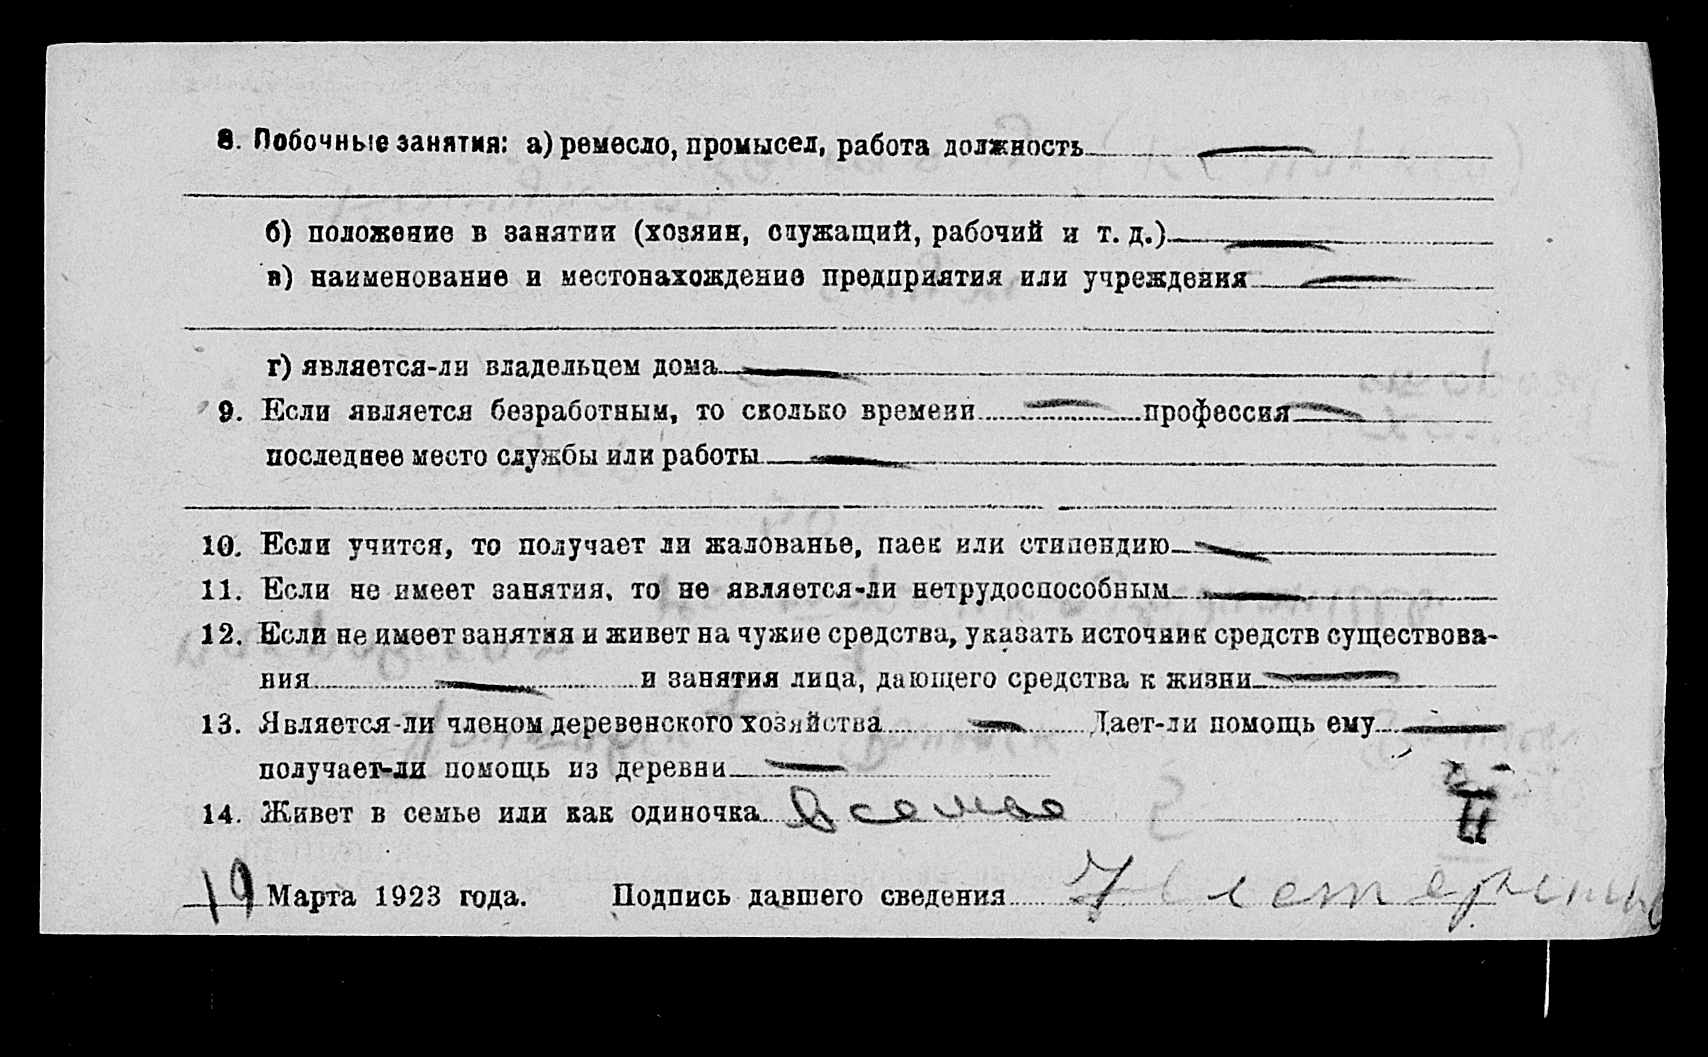 8. Побочные занятия: а) ремесло, промысел, работа должность —
б) положение в занятии (хозяин, служащий, рабочий и т. д.) —
в) наименование и местонахождение предприятия или учреждения —
г) является-ли владельцем дома —
9. Если является безработным, то сколько времени — профессия —
последнее место службы или работы —
10. Если учится, то получает ли жалованье, паек или стипендию —
11. Если не имеет занятия, то не является-ли нетрудоспособным —
12. Если не имеет занятия и живет на чужие средства, указать источник средств существова-
ния — и занятия лица, дающего средства к жизни —
13. Является-ли членом деревенского хозяйства — Дает-ли помощь ему —
получает-ли помощь из деревни —
14. Живет в семье или как одиночка В семье
II
19 Марта 1923 года. Подпись давшего сведения